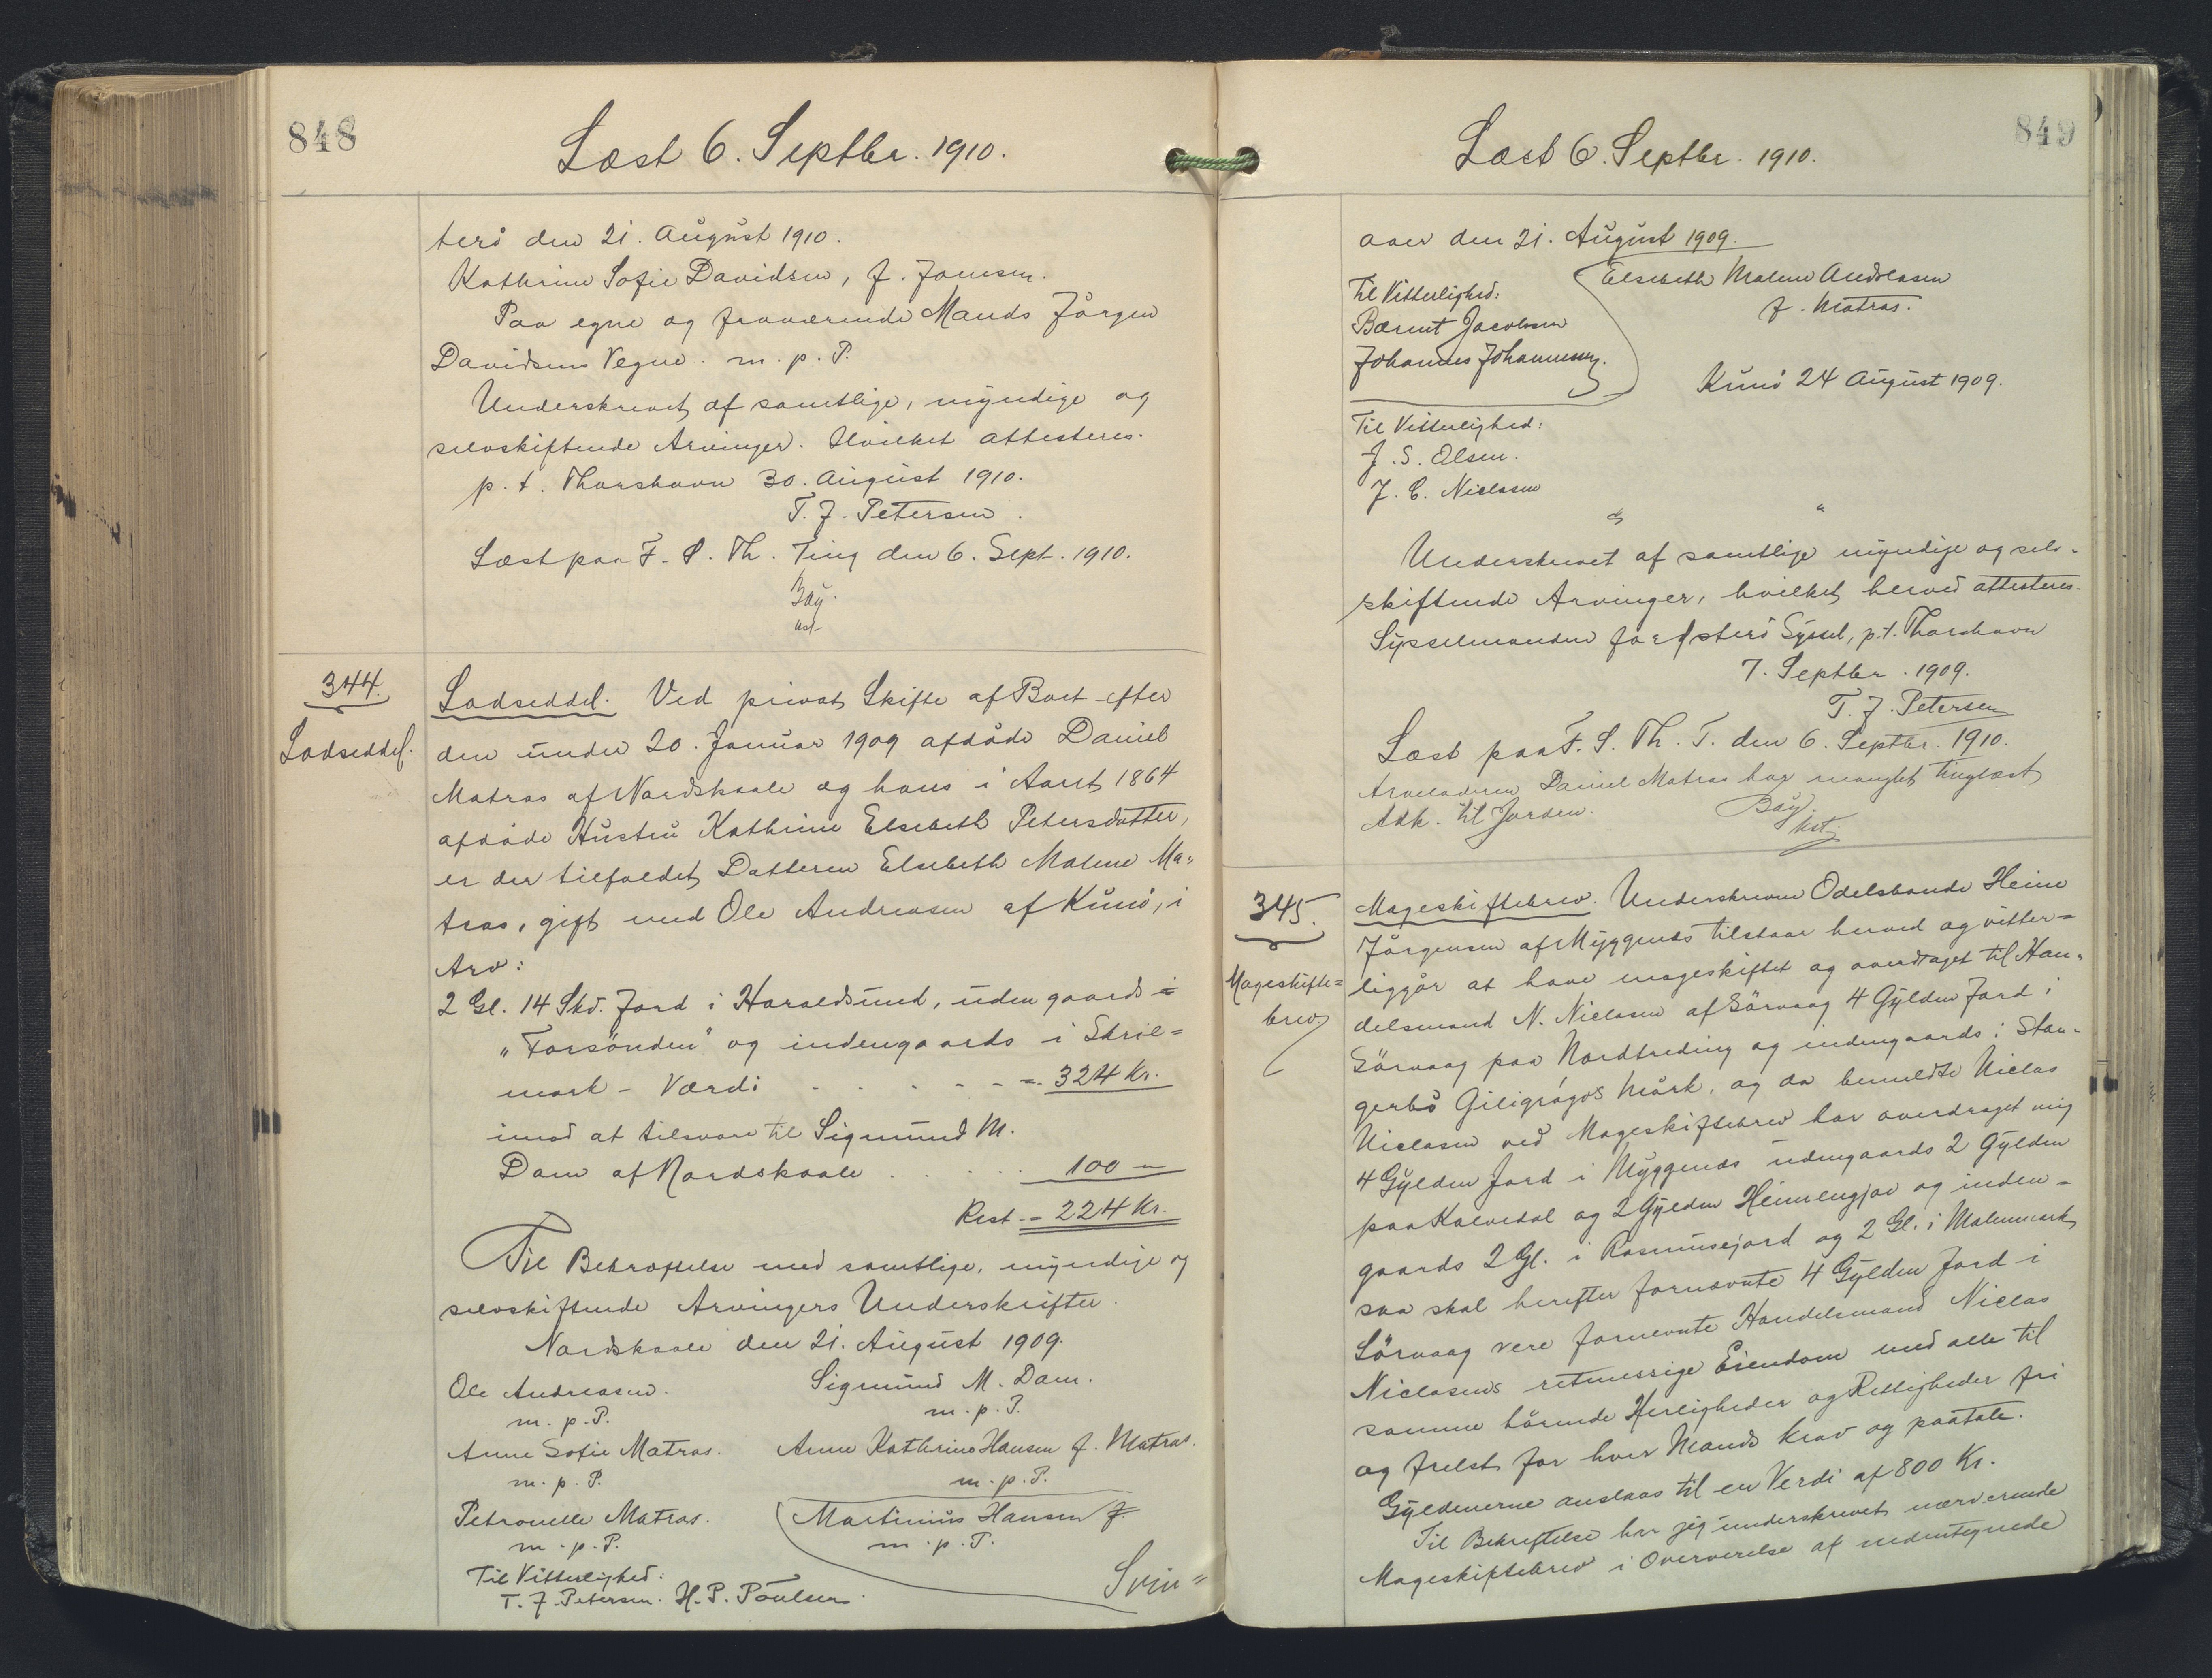 848
Læst 6. Septbr. 1910.
terö den 21. August 1910.
Kathrine Sofie Davidsen, f. Joensen.
Paa egne og fraværende Mands Jörgen
Davidsens Vegne. m. p. P.
Underskrevet af samtlige, myndige og
selvskiftende Arvinger. Hvilket attesteres.
p. t. Thorshavn 30. August 1910.
T. J. Petersen.
Læst paa F. S. Th. Ting den 6. Sept. 1910.
Bay.
cst.
344.
Lodseddel.
Lodseddel. Ved privat Skifte af Boet efter
den under 20. Januar 1909 afdöde Daniel
Matras af Nordskaale og hans i Aaret 1864
afdöde Hustru Kathrine Elsebeth Petersdatter,
er der tilfaldet Datteren Elsebeth Malene Ma-
tras, gift med Ole Andreasen af Kunö, i
Arv:
2 Gl. 14 Skd. Jord i Haraldsund, udengaards i
"Forsönden" og indengaards i Skril=
mark - Værdi - - - - - = 324 Kr.
imod at tilsvare til Sigmund M.
Dam af Nordskaale . . . . 100 -
Rest - = 224 Kr.
Til Bekræftelse med samtlige, myndige og
selvskiftende Arvingers Underskrifter.
Nordskaale den 21. August 1909.
Ole Andreasen. Sigmund M. Dam.
m. p. P. m. p. P.
Anne Sofie Matras. Anne Kathrine Hansen f. Matras.
m. p. P. m. p. P.
Petronelle Matras. Martinus Hansen f.
m. p. P. m. p. P.
Til Vitterlighed:
T. J. Petersen. H. P. Poulsen.
Svin=
849
Læst 6. Septbr. 1910.
aaer den 21. August 1909.
Til Vitterlighed: Elsebeth Malene Andreasen
Bærent Jacobsen f. Matras.
Johannes Johannesen.
Kunö 24 August 1909.
Til Vitterlighed:
J. S. Olsen.
J. C. Niclasen
Underskrevet af samtlige myndige og selv-
skiftende Arvinger, hvilket herved attesteres.
Sysselmanden for Österö Syssel, p. t. Thorshavn
7. Septbr. 1909.
T. J. Petersen
Læst paa F. S. Th. T. den 6. Septbr. 1910.
Arveladeren Daniel Matras har manglet tinglæst
Adk. til Jorden. Bay.
cst.
345.
Mageskifte=
brev
Mageskiftebrev. Underskrevne Odelsbonde Heine
Jörgensen af Myggenæs tilstaar herved og vitter=
liggör at have mageskiftet og overdraget til Han-
delsmand N. Niclasen af Sörvaag 4 Gylden Jord i
Sörvaag paa Nordtreding og indengaards i Stan-
gerbö Giligrágos Mörk, og da bemeldte Niclas
Niclasen ved Mageskiftebrev har overdraget mig
4 Gylden Jord i Myggenæs udengaards 2 Gylden
paa Kalvedal og 2 Gylden Heimrengjae og inden=
gaards 2 Gl. i Rasmusejord og 2 Gl. i Malenmark,
saa skal herefter fornævnte 4 Gylden Jord i
Sörvaag vere fornevnte Handelsmand Niclas
Niclasens retmessige Eiendom med alle til
samme hörende Herligheder og Rettigheder fri
og frelst for hver Mands krav og paatale.
Gyldenerne anslaas til en Verdi af 800 Kr.
Til Bekreftelse har jeg underskrevet nærverende
Mageskiftebrev i Oververelse af nedentegnede